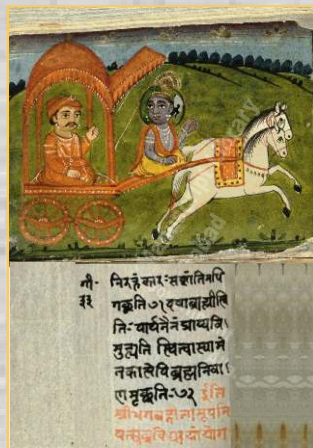 गी॰ निरहंकारः सशांतिमधि
३३ गछति ७१ एषा ब्राह्मी स्थि
तिः पार्थ नैनं प्राप्य वि
मुह्यति स्थित्वास्यामं
तकालेपि ब्रह्मनिर्वा
णमृछति ७२ इति
श्रीभगवद्गीतासूपनि
षत्सु ब्रह्मविद्यायां योग